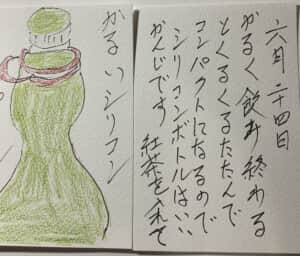 六月二十四日
かるく飲み終わる
とくるくるたたんで
コンパクトになるので
シリコンボトルはいい
かんじです 紅茶を入れて
かるいシリコン